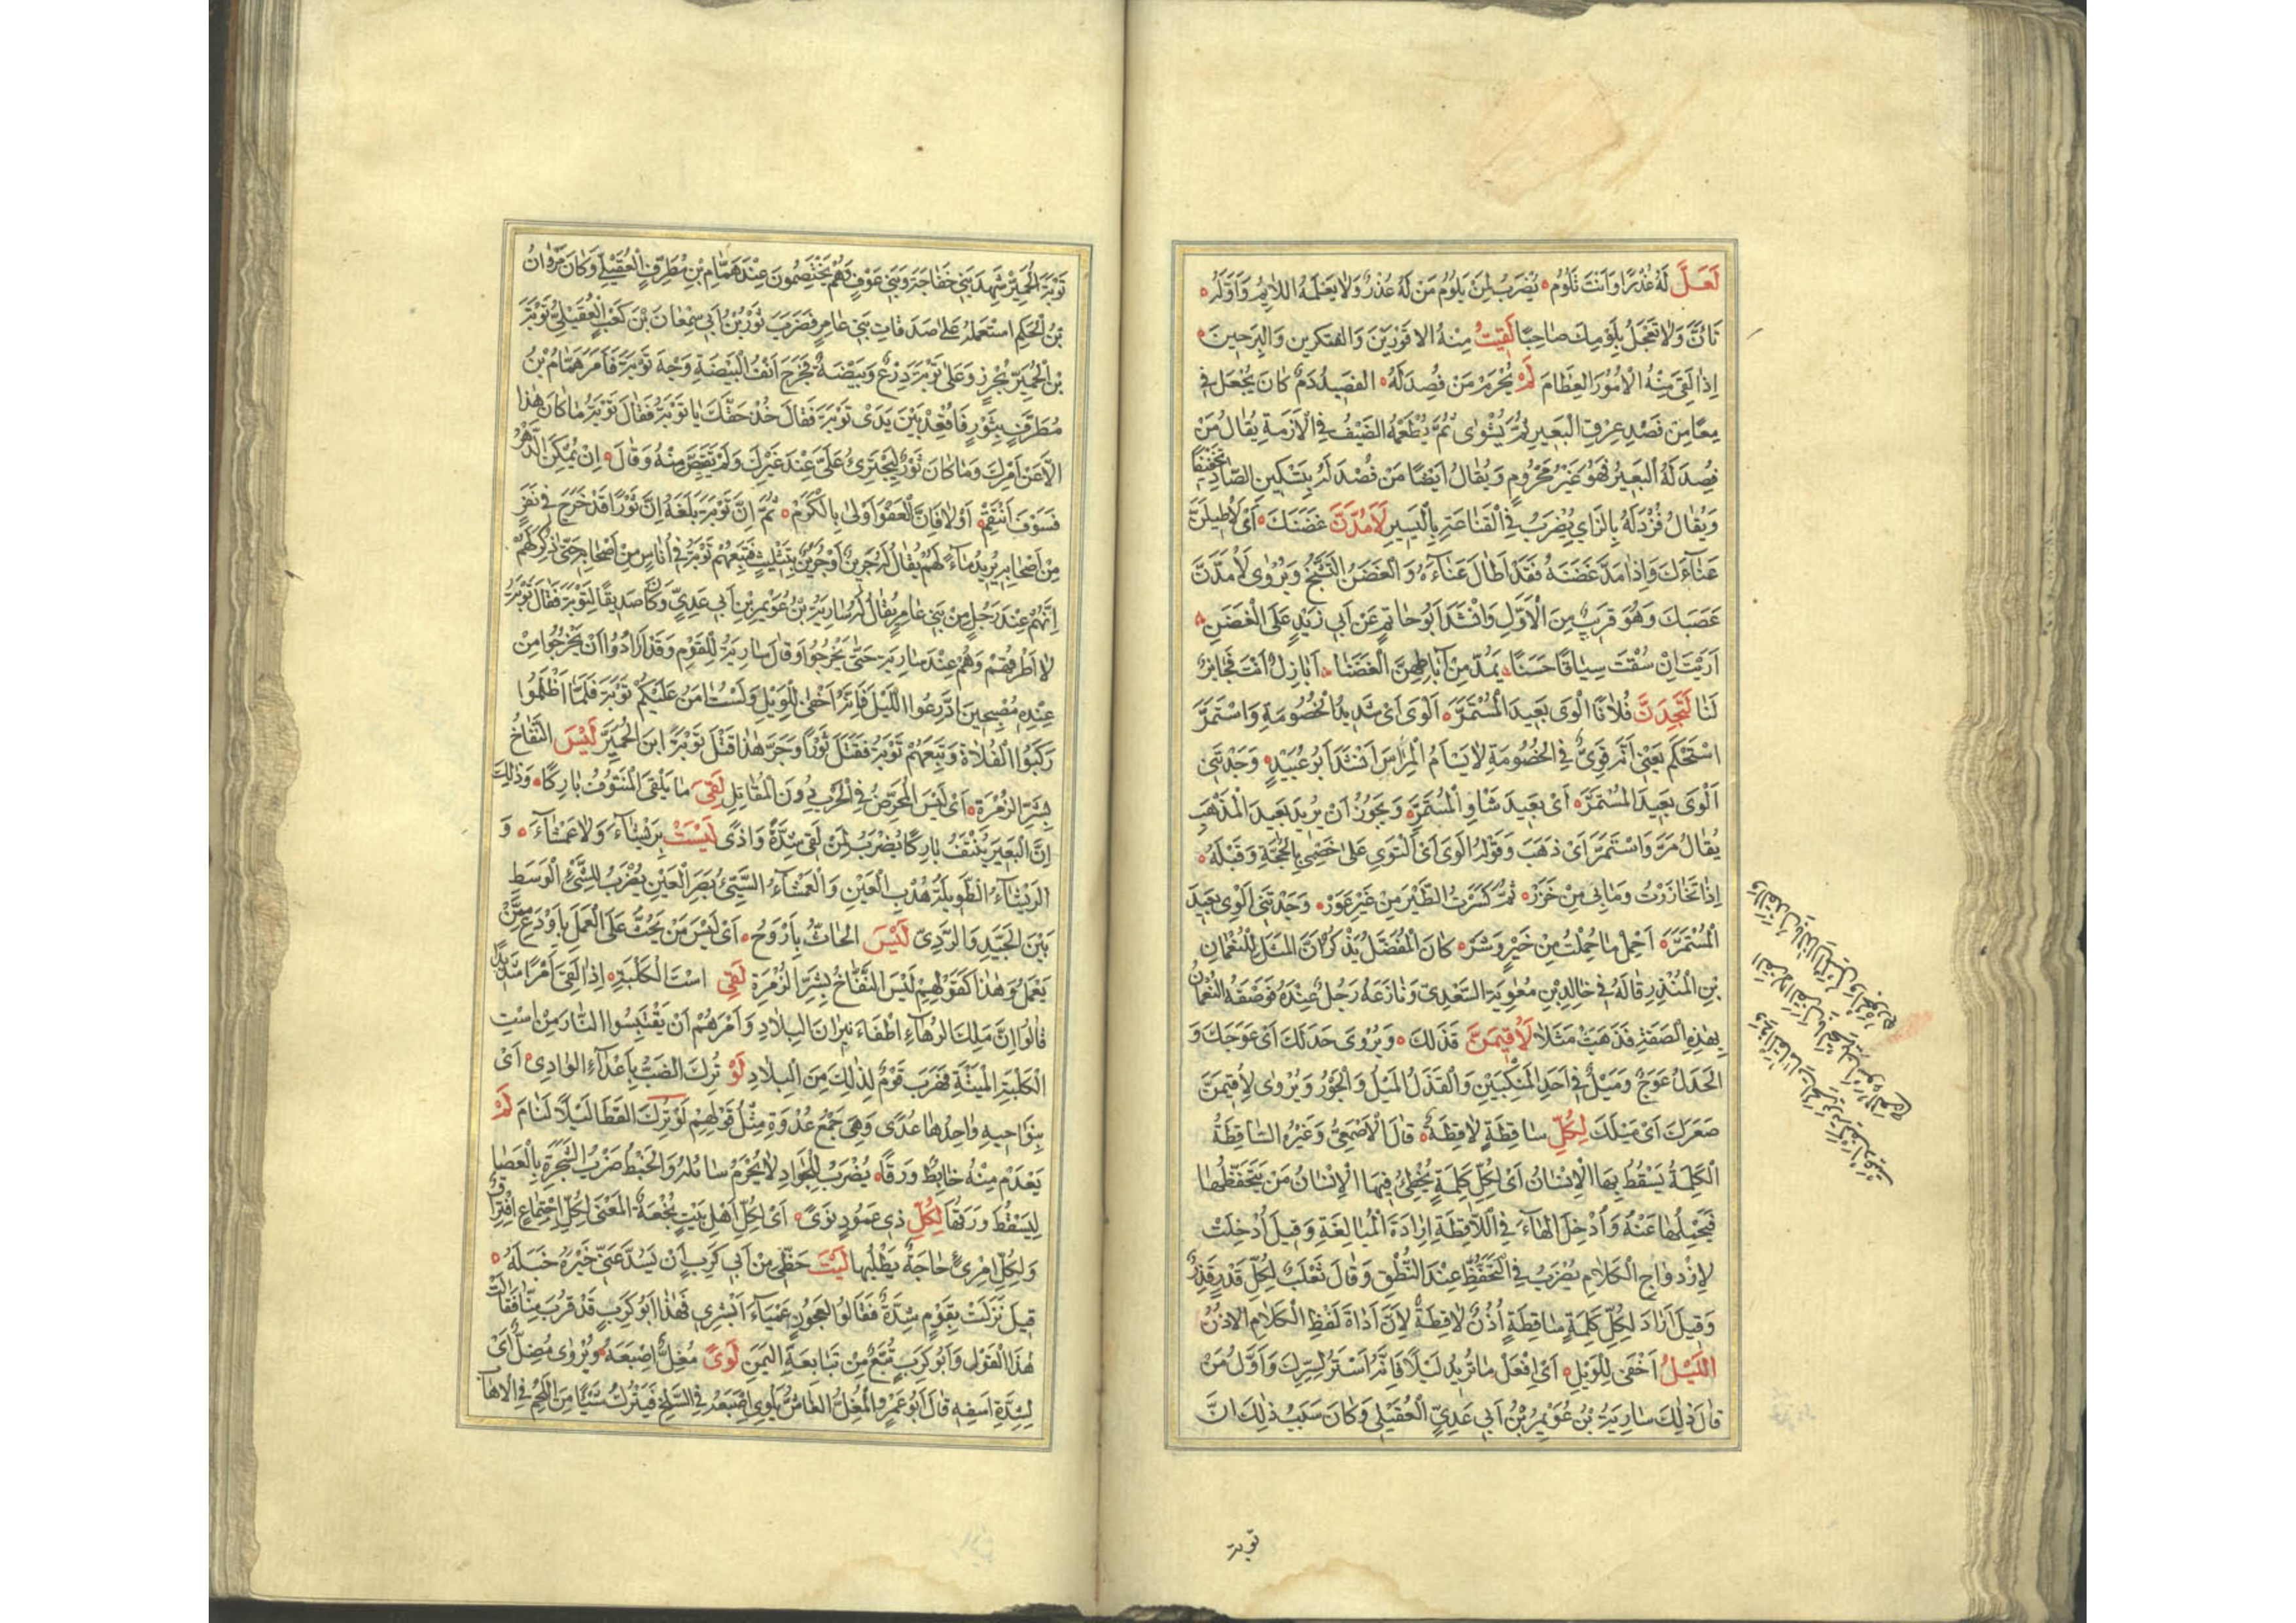 لَعَلَّ لَهُ عُذْرًا وَاَنْتَ تَلُومُ يُضْرَبُ لِمَنْ يَلُومُ مَنْ لَهُ عُذْرٌ وَلَا يَعْلَمُهُ اللَّائِمُ وَاَوَّلُهُ
تَاَنَّ وَلَا تَعْجَلْ بِلَوْمِكَ صَاحِبًا لَقِيتُ مِنْهُ الاقْوَرِيْنَ وَالفتكرين وَالبرَحِينَ
اِذَا لَقِيَ مِنْهُ الْاُمُوْرَ العِظَامَ لَمْ يُحْرَمْ مَنْ فُصِدَلَهُ الفَصِيْدُ دَمٌ كَانَ يُجْعَلُ فِي
مِعًا مِنْ فَصْدِ عِرْقِ الْبَعِيرِ ثُمَّ يُشْوٰى ثُمَّ يُطْعَمُهُ الضَّيْفُ فِي الْاَزْمَةِ يُقَالُ مَنْ
فُصِدَ لَهُ الْبَعِيرُ فَهُوَ غَيْرُ مَحْرُومٍ وَيُقَالُ اَيْضًا مَنْ فُصْدَ لَهُ بِتَسْكِينِ الصَّادِ تَخْفِيفًا
وَيُقَالُ فُزْدَ لَهُ بِالزَّايِ يُضْرَبُ فِي الْقَنَاعَةِ بِالْيَسِيرِ لَاَمُدَّنَّ غَضَنَكَ اَيْ لَاُطِيلَنَّ
عَنَآءَكَ وَاِذَا مَدَّ غَضَنَهُ فَقَدْ اَطَالَ عَنَاءَهُ وَالْغَضَنُ التَّشَنُّجُ وَيُرْوٰى لَاَمُدَّنَّ
عَصَبَكَ وَهُوَ قَرِيبٌ مِنَ الْاَوَّلِ وَاَنْشَدَ اَبُوحَاتِمٍ عَنْ اَبِي زَيْدٍ عَلَى الْغَضَنِ
اَرَيْتَ اِنْ سُقْتَ سِيَاقًا حَسَنًا يَمُدُّ مِنْ اٰبَاطِهِنَّ الْغَضَنَا اَنَازِلٌ اَنْتَ فَخَابِزٌ
لَنَا لَتَجِدَنَّ فُلَانًا اَلْوٰى بَعِيدَ الْمُسْتَمَرِّ اَلْوٰى اَيْ شَدِيدُ الْخُصُومَةِ وَاسْتَمَرَّ
اسْتَحْكَمَ يَعْنِي اَنَّهُ قَوِيٌّ فِي الخُصُومَةِ لَا يَسْاَمُ الْمِرَاسَ اَنْشَدَ اَبُو عُبَيْدٍ وَجَدْتَنِي
اَلْوٰى بَعِيدَ الْمُسْتَمَرِّ اَيْ بَعِيدَ شَاْوِ الْمُسْتَمَرِّ وَيَجُوزُ اَنْ يُرِيدَ بَعِيدَ الْمَذْهَبِ
يُقَالُ مَرَّ وَاسْتَمَرَّ اَيْ ذَهَبَ وَقَوْلُهُ اَلْوٰى اَيْ اَلْتَوِي عَلٰى خَصْمِي بِالْحُجَّةِ وَقَبْلَهُ
اِذَا تَخَازَرْتُ وَمَابِي مِنْ خَزَرْ ثُمَّ كَسَرْتُ الطَّرْفَ مِنْ غَيْرِ عَوَرْ وَجَدْتَنِي اَلْوٰى بَعِيدَ
الْمُسْتَمَرِّ اَحْمِلُ مَا حُمِّلْتُ مِنْ خَيْرٍ وَشَرّ كَانَ الْمُفَضَّلُ يَذْكُرُ اَنَّ الْمَثَلَ لِلنُّعْمَانِ
بْنِ الْمُنْذِرِ قَالَهُ فِي خَالِدِ بْنِ مُعٰوِيَةَ السَّعْدِيِّ وَنَازَعَهُ رَجُلٌ عِنْدَهُ فَوَصَفَهُ النُّعْمَانُ
بِهٰذِهِ الصِّفَةِ فَذَهَبَتْ مَثَلًا لَاُقِيمَنَّ قَذَلَكَ وَيُرْوٰى حَدَلَكَ اَيْ عَوَجَكَ وَ
الْحَدَلُ عَوَجٌ وَمَيْلٌ فِي اَحَدِ الْمَنْكِبَيْنِ وَالْقَذَلُ الْمَيْلُ وَالْجَوْرُ وَيُرْوٰى لَاُقِيمَنَّ
صَعَرَكَ اَيْ مَيْلَكَ لِكُلِّ سَاقِطَةٍ لَاقِطَةٌ قَالَ الْاَصْمَعِيُّ وَغَيْرُهُ السَّاقِطَةُ
الْكَلِمَةُ يَسْقُطُ بِهَا الْاِنْسَانُ اَيْ لِكُلِّ كَلِمَةٍ يُخْطِئُ فِيهَا الْاِنْسَانُ مَنْ يَتَحَفَّظُهَا
فَيَحْمِلُهَا عَنْهُ وَاُدْخِلَ الْهَاءُ فِي اللَّاقِطَةِ اِرَادَةَ الْمُبَالَغَةِ وَقِيلَ اُدْخِلَتْ
لِازْدِوَاجِ الْكَلَامِ يُضْرَبُ فِي التَّحَفُّظِ عِنْدَ النُّطْقِ وَقَالَ ثَعْلَبٌ لِكُلِّ قَذِرٍ قَذِرٌ
وَقِيلَ اَرَادَ لِكُلِّ كَلِمَةٍ سَاقِطَةٍ اُذُنٌ لَاقِطَةٌ لِاَنَّ اَدَاةَ لَفْظِ الْكَلَامِ الْاُذُنُ
اللَّيْلُ اَخْفٰى لِلْوَيْلِ اَيْ اِفْعَلْ مَا تُرِيدُ لَيْلًا فَاِنَّهُ اَسْتَرُ لِسِرِّكَ وَاَوَّلُ مَنْ
قَالَ ذٰلِكَ سَارِيَةُ بْنُ عُوَيْمِرِ بْنِ اَبِي عَدِيٍّ الْعُقَيْلِيُّ وَكَانَ سَبَبُ ذٰلِكَ اَنَّ
توبة
تَوْبَةَ بْنَ الْحُمَيِّرِ شَهِدَ بَنِي خَفَاجَةَ وَبَنِي عَوْفٍ وَهُمْ يَخْتَصِمُونَ عِنْدَ هَمَّامِ بْنِ مُطَرِّفٍ الْعُقَيْلِيِّ وَكَانَ مَرْوَانُ
بْنُ الْحَكَمِ اسْتَعْمَلَهُ عَلٰى صَدَقَاتِ بَنِي عَامِرٍ فَضَرَبَ ثَوْرُ بْنُ اَبِي سِمْعَانَ بْنِ كَعْبٍ الْعُقَيْلِيُّ تَوْبَةَ
بْنَ الْحُمَيِّرِ بِجُرْزٍ وَعَلٰى تَوْبَةَ دِرْعٌ وَبَيْضَةٌ فَجَرَحَ اَنْفُ الْبَيْضَةِ وَجْهَ تَوْبَةَ فَاَمَرَ هَمَّامُ بْنُ
مُطَرِّفٍ بِثَوْرٍ فَاُقْعِدَ بَيْنَ يَدَيْ تَوْبَةَ فَقَالَ خُذْ حَقَّكَ يَا تَوْبَةُ فَقَالَ تَوْبَةُ مَا كَانَ هٰذَا
اِلَّا عَنْ اَمْرِكَ وَمَا كَانَ ثَوْرٌ لِيَجْتَرِئَ عَلَيَّ عِنْدَ غَيْرِكَ وَلَمْ يَقْتَصَّ مِنْهُ وَقَالَ اِنْ يُمْكِنِ الدَّهْرُ
فَسَوْفَ اَنْتَقِمْ اَوْ لَا فَاِنَّ الْعَفْوَ اَوْلٰى بِالْكَرَمْ ثُمَّ اِنَّ تَوْبَةَ بَلَغَهُ اِنَّ ثَوْرًا قَدْ خَرَجَ فِي نَفَرٍ
مِنْ اَصْحَابِهِ يُرِيدُ مَاءً لَهُمْ يُقَالُ لَهُ جَرِيرٌ اَوْ جَرِيرٌ بِتَثْلِيثٍ فَتَبِعَهُمْ تَوْبَةُ فِي اُنَاسٍ مِنْ اَصْحَابِهِ حَتّٰى ذُكِرَ لَهُمْ
اِنَّهُمْ عِنْدَ رَجُلٍ مِنْ بَنِي عَامِرٍ يُقَالُ لَهُ سَارِيَةُ بْنُ عُوَيْمِرِ بْنِ اَبِي عَدِيٍّ وَكَانَ صَدِيقًا لِتَوْبَةَ فَقَالَ تَوْبَةُ
لَا اَطْرُقُهُمْ وَهُمْ عِنْدَ سَارِيَةَ حَتّٰى يَخْرُجُوا وَقَالَ سَارِيَةُ لِلْقَوْمِ وَقَدْ اَرَادُوا اَنْ يَخْرُجُوا مِنْ
عِنْدِهِ مُصْبِحِينَ ادَّرِعُوا اللَّيْلَ فَاِنَّهُ اَخْفٰى لِلْوَيْلِ وَلَسْتُ اٰمَنُ عَلَيْكُمْ تَوْبَةَ فَلَمَّا اَظْلَمُوا
رَكِبُوا الْفَلَاةَ وَتَبِعَهُمْ تَوْبَةُ فَقَتَلَ ثَوْرًا وَجَرَّ هٰذَا قَتْلَ تَوْبَةَ ابْنِ الْحُمَيِّرِ لَيْسَ النَّفَّاخُ
بِشَرِّ الزُّمْرَةِ اَيْ لَيْسَ الْمُحَرِّضُ فِي الْحَرْبِ دُونَ الْمُقَاتِلِ لَقِيَ مَا يَلْقَى الْمَنْتُوفُ بَارِكًا وَذٰلِكَ
اِنَّ الْبَعِيرَ يُنْتَفُ بَارِكًا يُضْرَبُ لِمَنْ لَقِيَ شِدَّةً وَاَذًى لَيْسَتْ بِرَيْشَاءَ وَلَا عَمْشَاءَ وَ
الرَّيْشَاءُ الطَّوِيلَةُ هُدْبِ الْعَيْنِ وَالْعَمْشَاءُ السَّيِّئُ بَصَرِ الْعَيْنِ يُضْرَبُ لِلشَّيْءِ الْوَسَطِ
بَيْنَ الْجَيِّدِ وَالرَّدِيِّ لَيْسَ الْحَاثُّ بِاَرْوَحَ اَيْ لَيْسَ مَنْ يَحُثُّ عَلَى الْعَمَلِ بِاَوْدَعَ مِمَّنْ
يَعْمَلُ وَهٰذَا كَقَوْلِهِمْ لَيْسَ النَّفَّاخُ بِشَرِّ الزُّمْرَةِ لَقِيَ اسْتَ الْكَلْبَةِ اِذَا لَقِيَ اَمْرًا شَدِيدًا
قَالُوا اِنَّ مَلِكَ الرُّهَاءِ اَطْفَاَ نِيرَانَ الْبِلَادِ وَاَمَرَهُمْ اَنْ يَقْتَبِسُوا النَّارَ مِنْ اسْتِ
الْكَلْبَةِ الْمَيْتَةِ فَهَرَبَ قَوْمٌ لِذٰلِكَ مِنَ الْبِلَادِ لَوْ تُرِكَ الضَّبُّ بِاَعْدَاءِ الْوَادِي اَيْ
بِنَوَاحِيهِ وَاحِدُهَا عُدًى وَهِيَ جَمْعُ عُدْوَةٍ مِثْلُ قَوْلِهِمْ لَوْ تُرِكَ الْقَطَا لَيْلًا لَنَامَ لَمْ
يَعْدَمْ مِنْهُ خَابِطٌ وَرَقًا يُضْرَبُ لِلْجَوَادِ لَا يَحْرِمُ سَائِلَهُ وَالْخَبْطُ ضَرْبُ الشَّجَرَةِ بِالْعَصَا
لِيَسْقُطَ وَرَقُهَا لِكُلِّ ذِي عَمُودٍ نَوًى اَيْ لِكُلِّ اَهْلِ بَيْتٍ نُجْعَةٌ الْمَعْنٰى لِكُلِّ اجْتِمَاعٍ افْتِرَاقٌ
وَلِكُلِّ امْرِئٍ حَاجَةٌ يَطْلُبُهَا لَيْتَ حَظِّي مِنْ اَبِي كَرِبٍ اَنْ يَسُدَّ عَنِّي خَيْرُهُ خَبَلَهُ
قِيلَ نَزَلَتْ بِقَوْمٍ شِدَّةٌ فَقَالُوا لِعَجُوزٍ عَمْيَاءَ اَبْشِرِي فَهٰذَا اَبُو كَرِبٍ قَدْ قَرُبَ مِنَّا فَقَالَتْ
هٰذَا الْقَوْلَ وَاَبُو كَرِبٍ تُبَّعٌ مِنْ تَبَابِعَةِ الْيَمَنِ لَوٰى مُغِلٌّ اِصْبَعَهُ وَيُرْوٰى مُضِلٌّ اَيْ
لِشِدَّةِ اَسَفِهِ قَالَ اَبُو عَمْرٍو الْمُغِلُّ الْغَاشُّ يَلْوِي اِصْبَعَهُ فِي السَّلْخِ فَيَتْرُكُ شَيْئًا مِنَ اللَّحْمِ فِي الْاِهَابِ